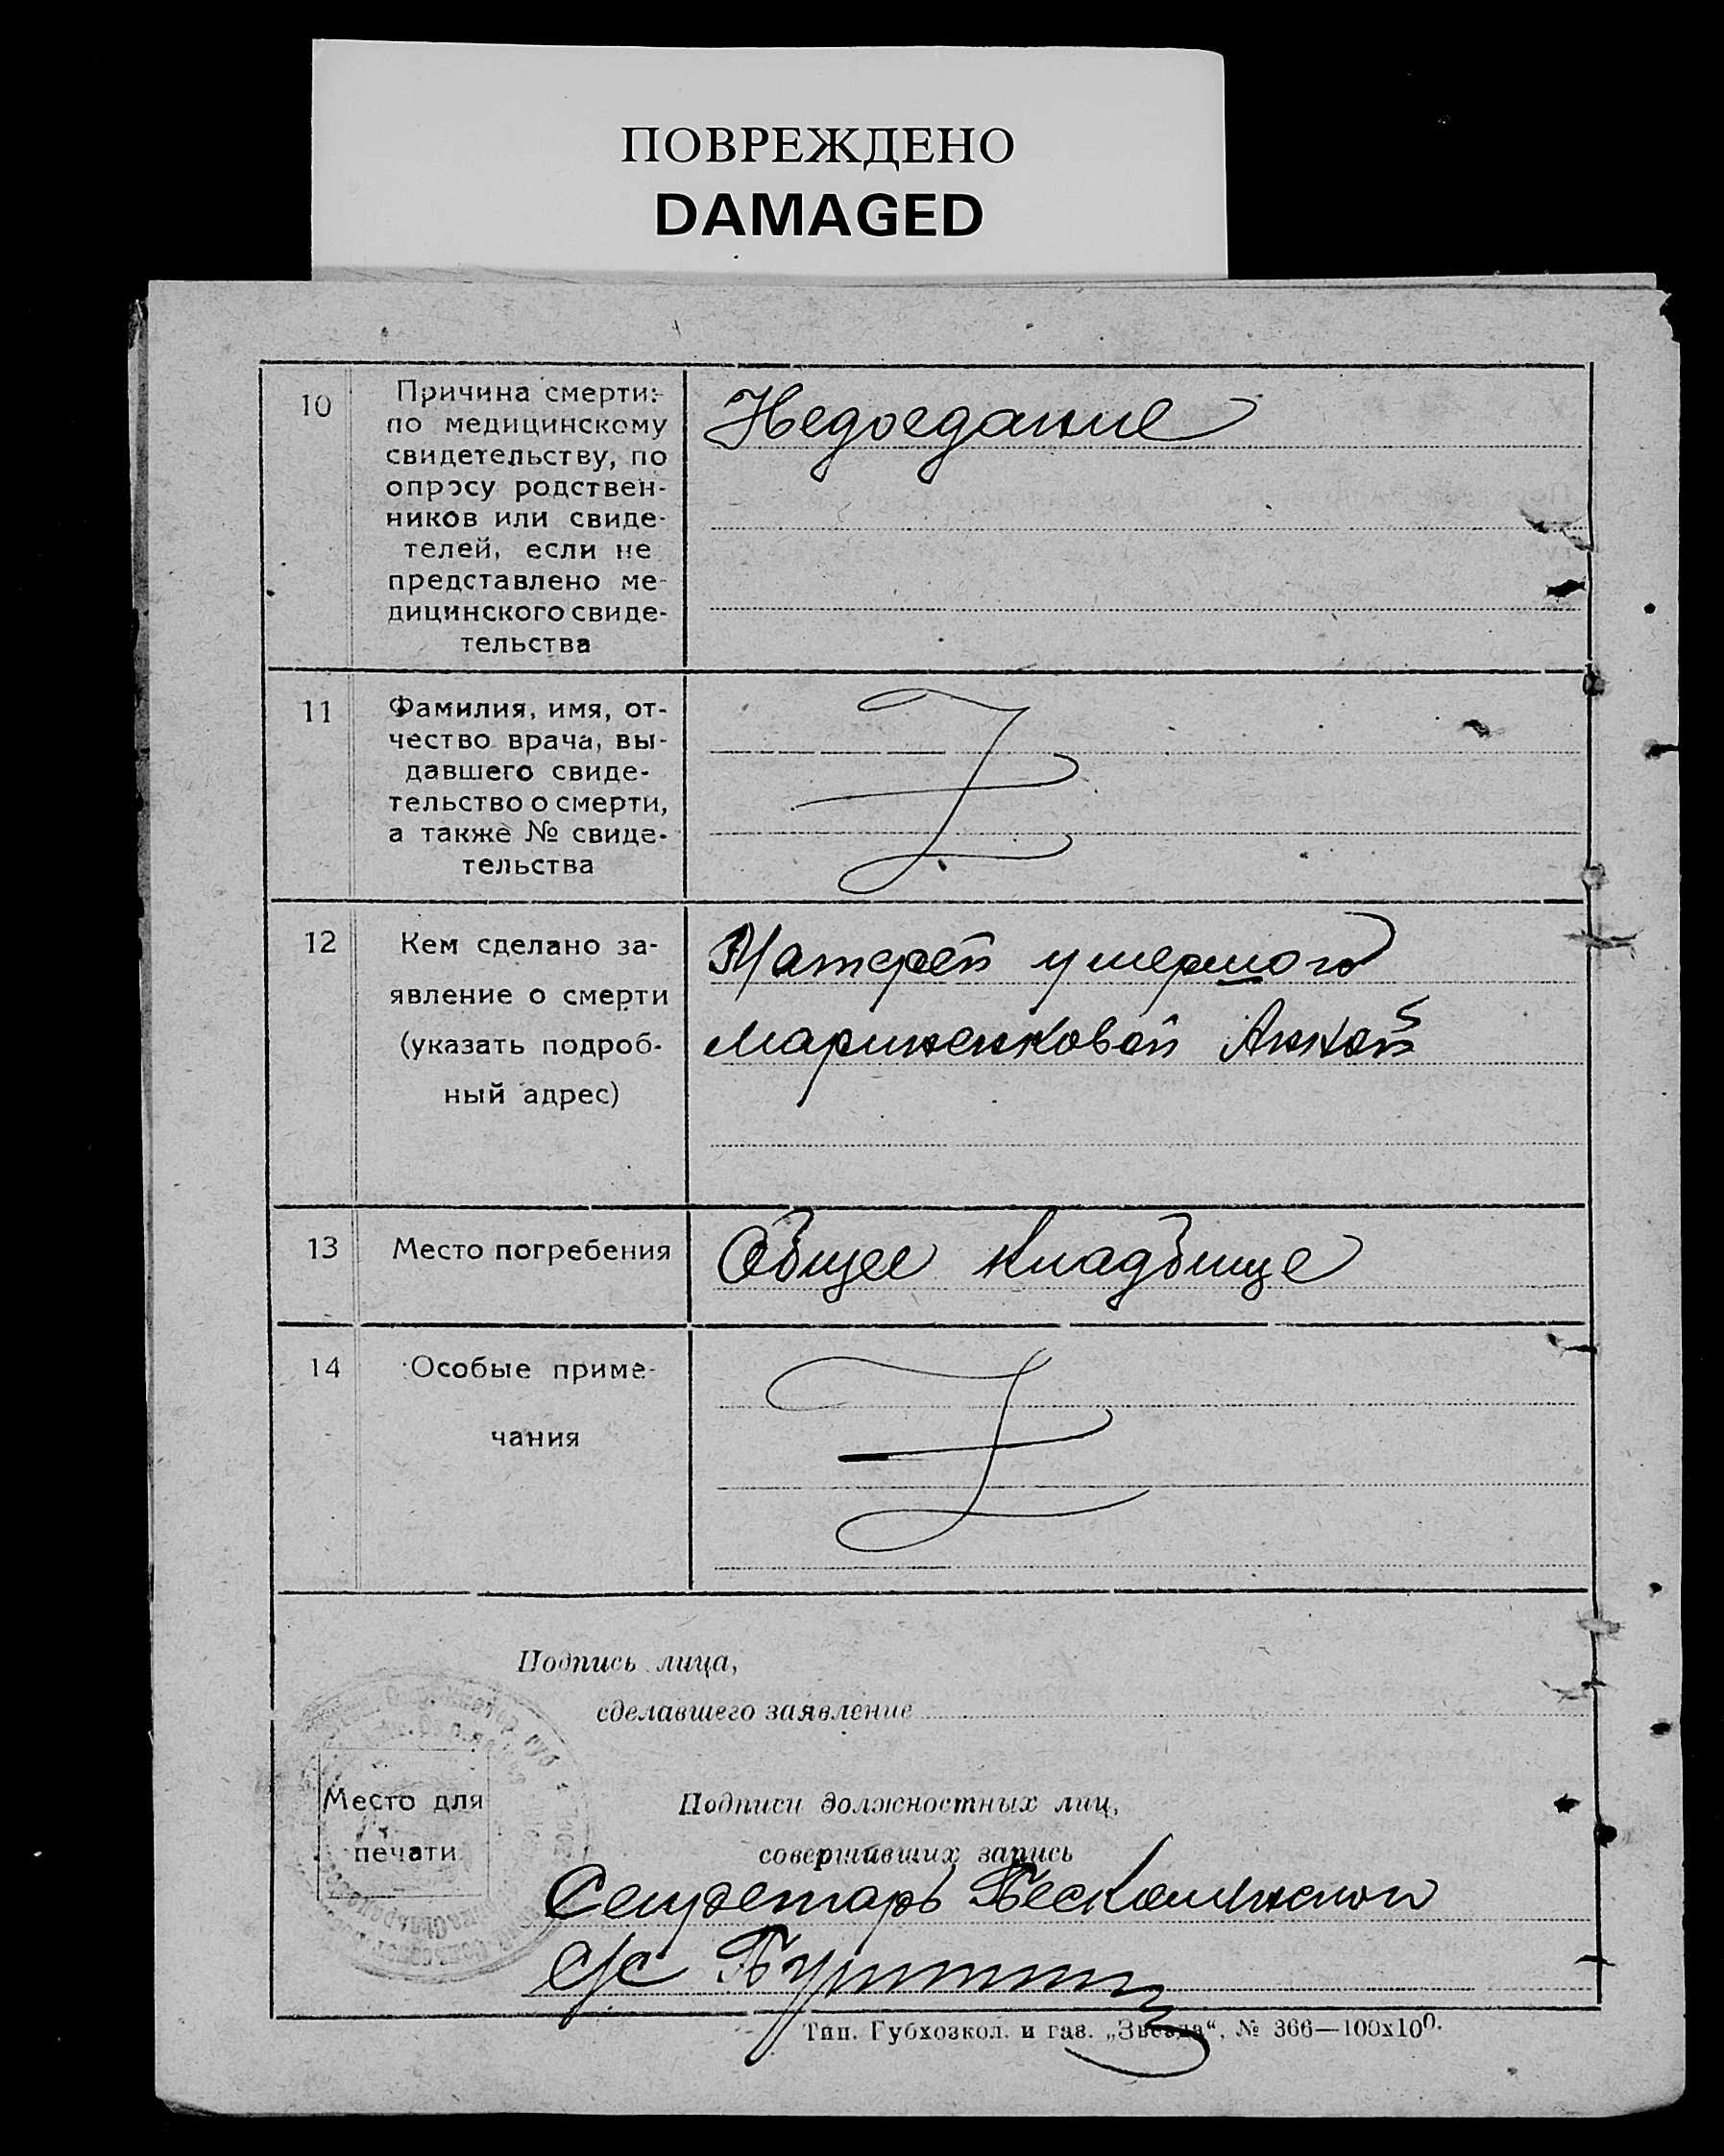 ПОВРЕЖДЕНО
DAMAGED
10
Причина смерти:
по медицинскому
свидетельству, по
опросу родствен-
ников или свиде-
телей, если не
представлено ме-
дицинского свиде-
тельства
Недоедание
11
Фамилия, имя, от-
чество врача, вы-
давшего свиде-
тельство о смерти,
а также № свиде-
тельства
12
Кем сделано за-
явление о смерти
(указать подроб-
ный адрес)
Матерей умершого
Мариненковой Анной
13
Место погребения
Общее кладбище
14
Особые приме-
чания
Подпись лица,
сделавшего заявление
Место для
печати
Подписи должностных лиц,
совершивших запись
Секретарь
с/с
Тип. Губхозкол. и газ. „Звезда“, № 366—100х100.